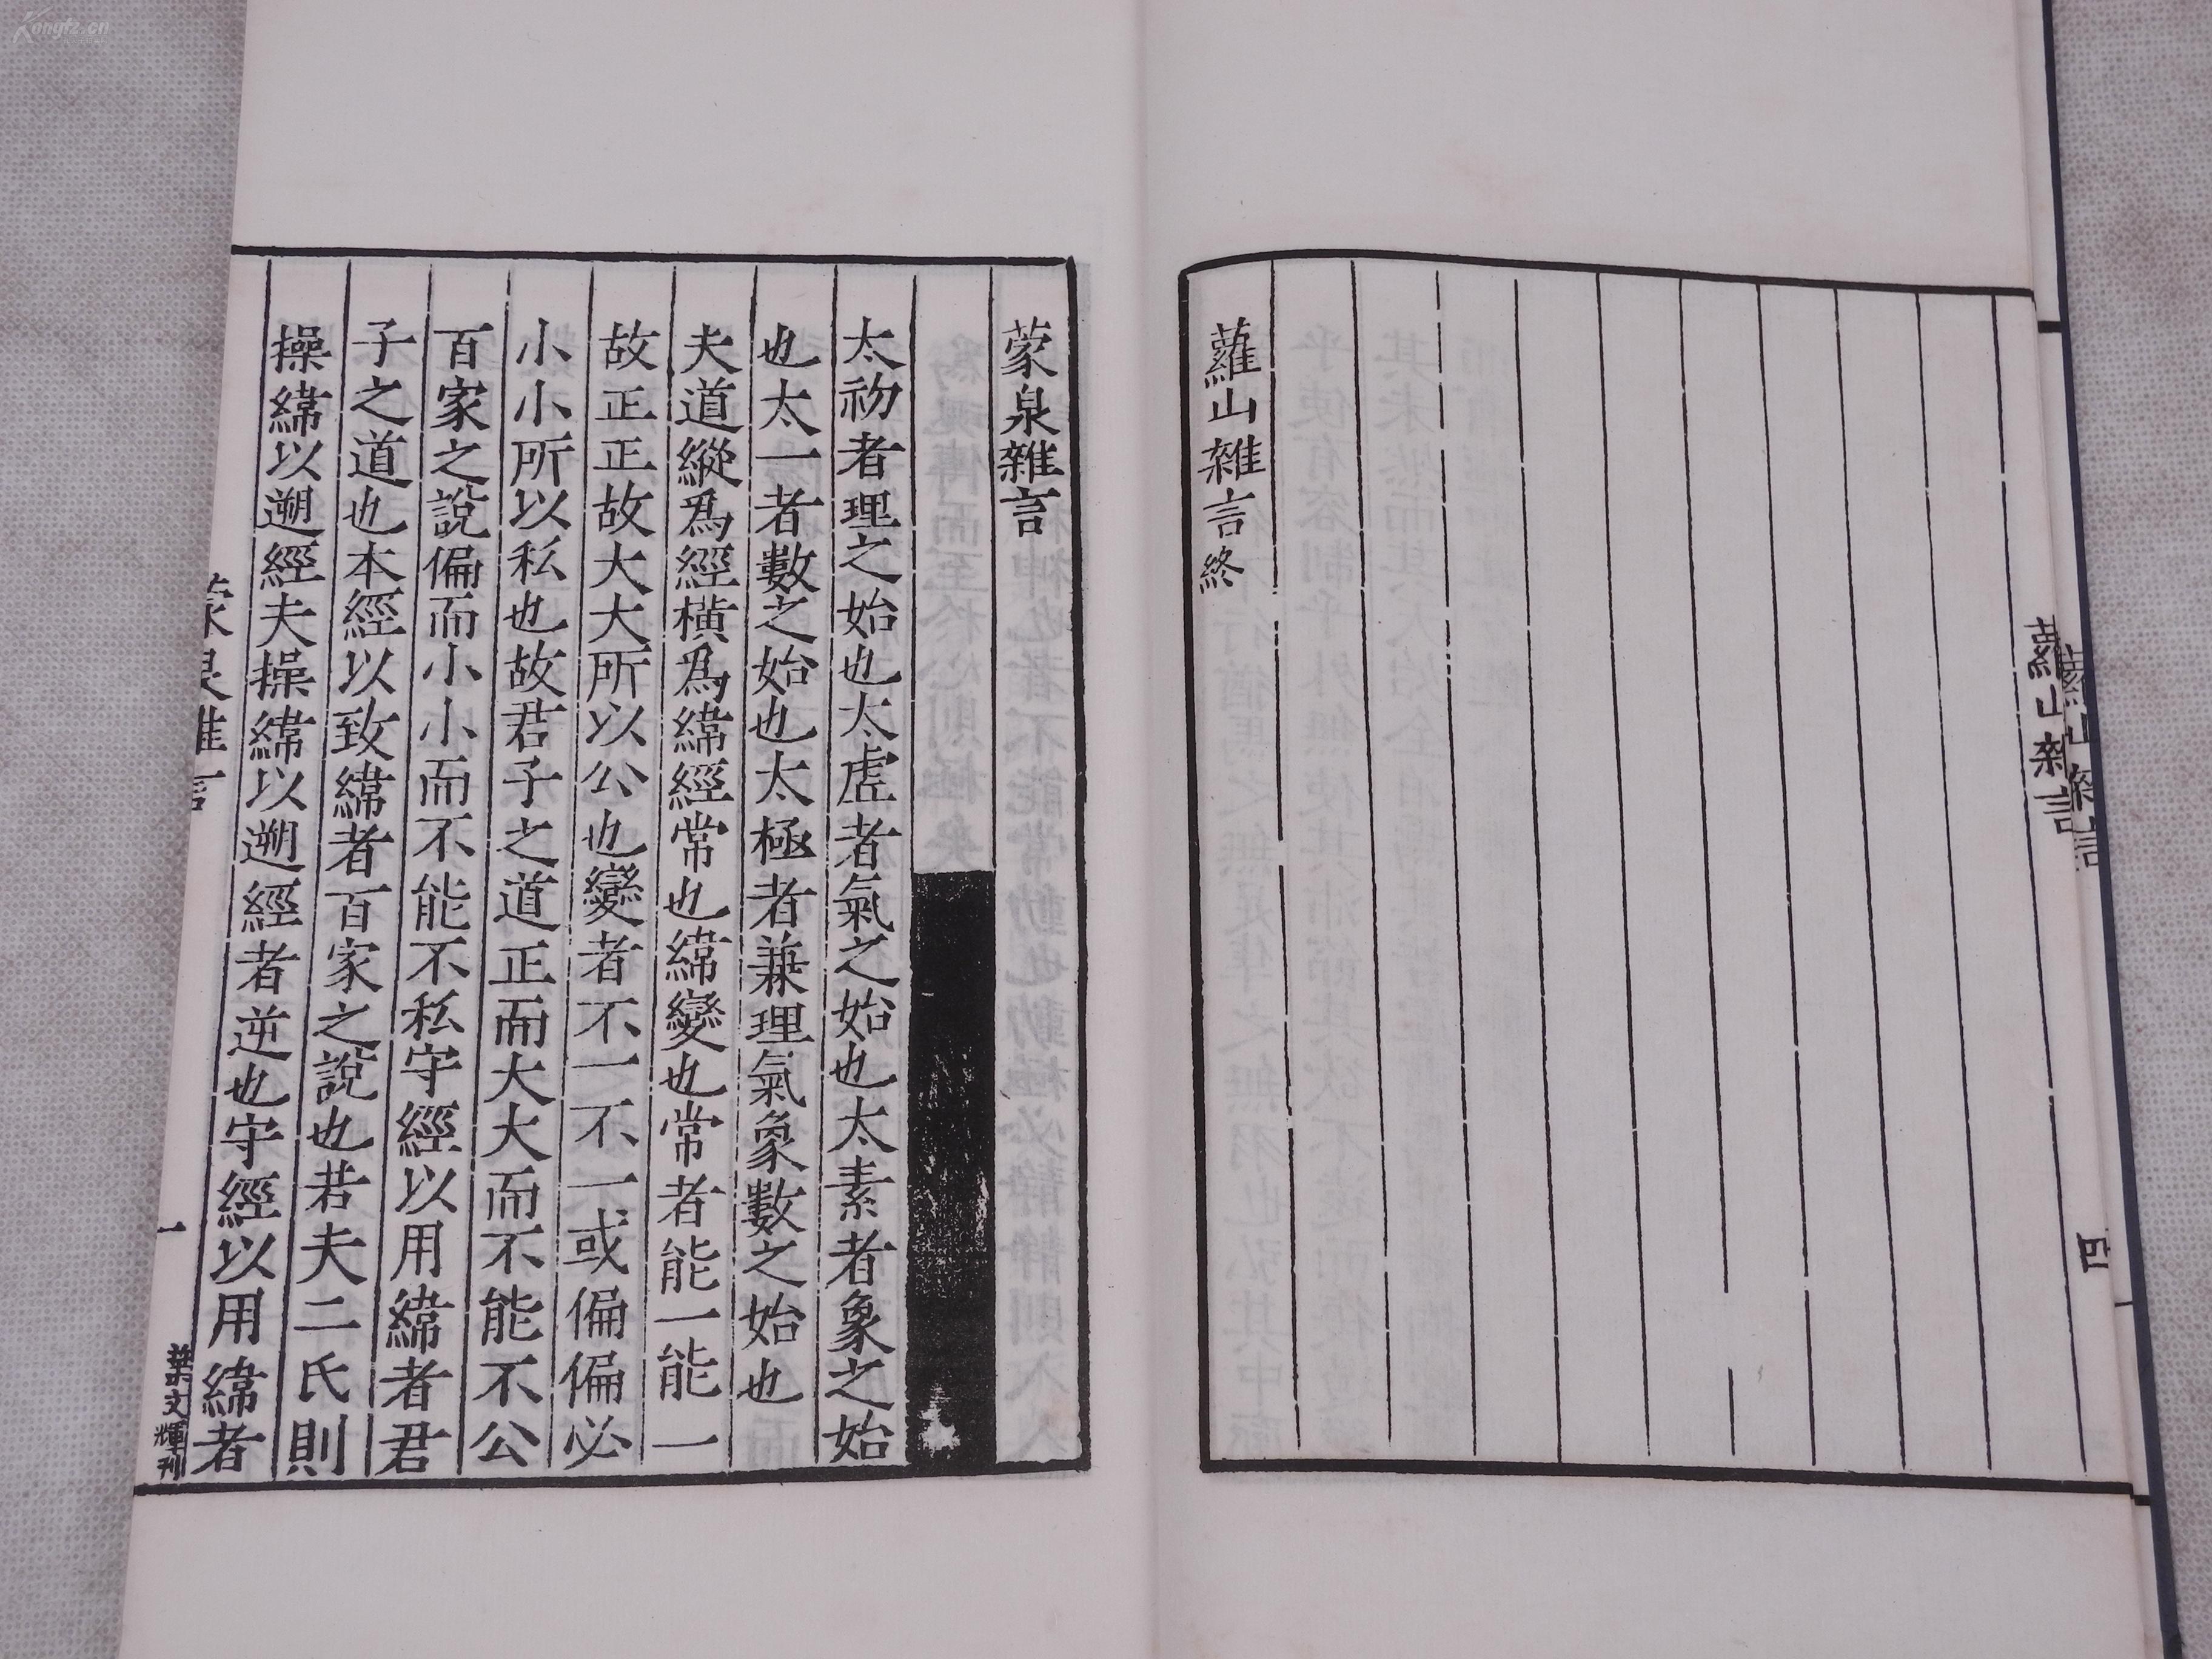 蘿山雜言
四
蘿山雜言終
蒙泉雜言
太初者理之始也太虛者氣之始也太素者象之始
也太一者數之始也太極者兼理氣象數之始也
夫道縱爲經橫爲緯經常也緯變也常者能一能一
故正正故大大所以公也變者不一不一或偏偏必
小小所以私也故君子之道正而大大而不能不公
百家之說偏而小小而不能不私守經以用緯者君
子之道也本經以致緯者百家之說也若夫二氏則
操緯以遡經夫操緯以遡經者逆也守經以用緯者
蒙泉雜言
一
葉文輝刊
Kongfz.cn